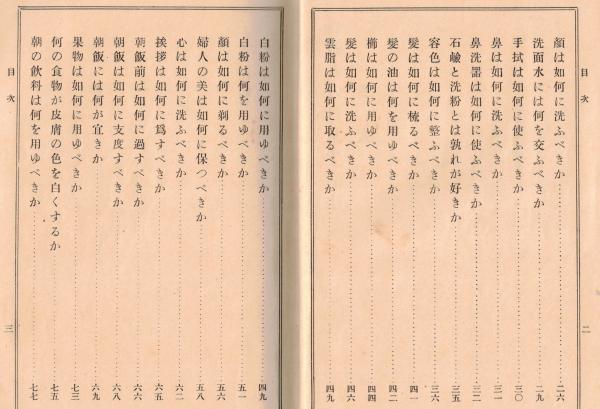 目次
顏は如何に洗ふべきか……二六
洗面水には何を交ふべきか……二九
手拭は如何に使ふべきか……三〇
鼻は如何に洗ふべきか……三一
鼻洗器は如何に使ふべきか……三二
石鹼と洗粉とは孰れが好きか……三五
容色は如何に整ふべきか……三六
髮は如何に梳るべきか……四一
髮の油は何を用ゆべきか……四二
櫛は如何に用ゆべきか……四四
髮は如何に洗ふべきか……四六
雲脂は如何に取るべきか……四九
二
白粉は如何に用ゆべきか……四九
白粉は何を用ゆべきか……五一
顏は如何に剃るべきか……五六
婦人の美は如何に保つべきか……五八
心は如何に洗ふべきか……六二
挨拶は如何に爲すべきか……六五
朝飯前は如何に過すべきか……六六
朝飯は如何に支度すべきか……六八
朝飯には何が宜きか……六九
果物は如何に用ゆべきか……七三
何の食物が皮膚の色を白くするか……七五
朝の飮料は何を用ゆべきか……七七
目次
三